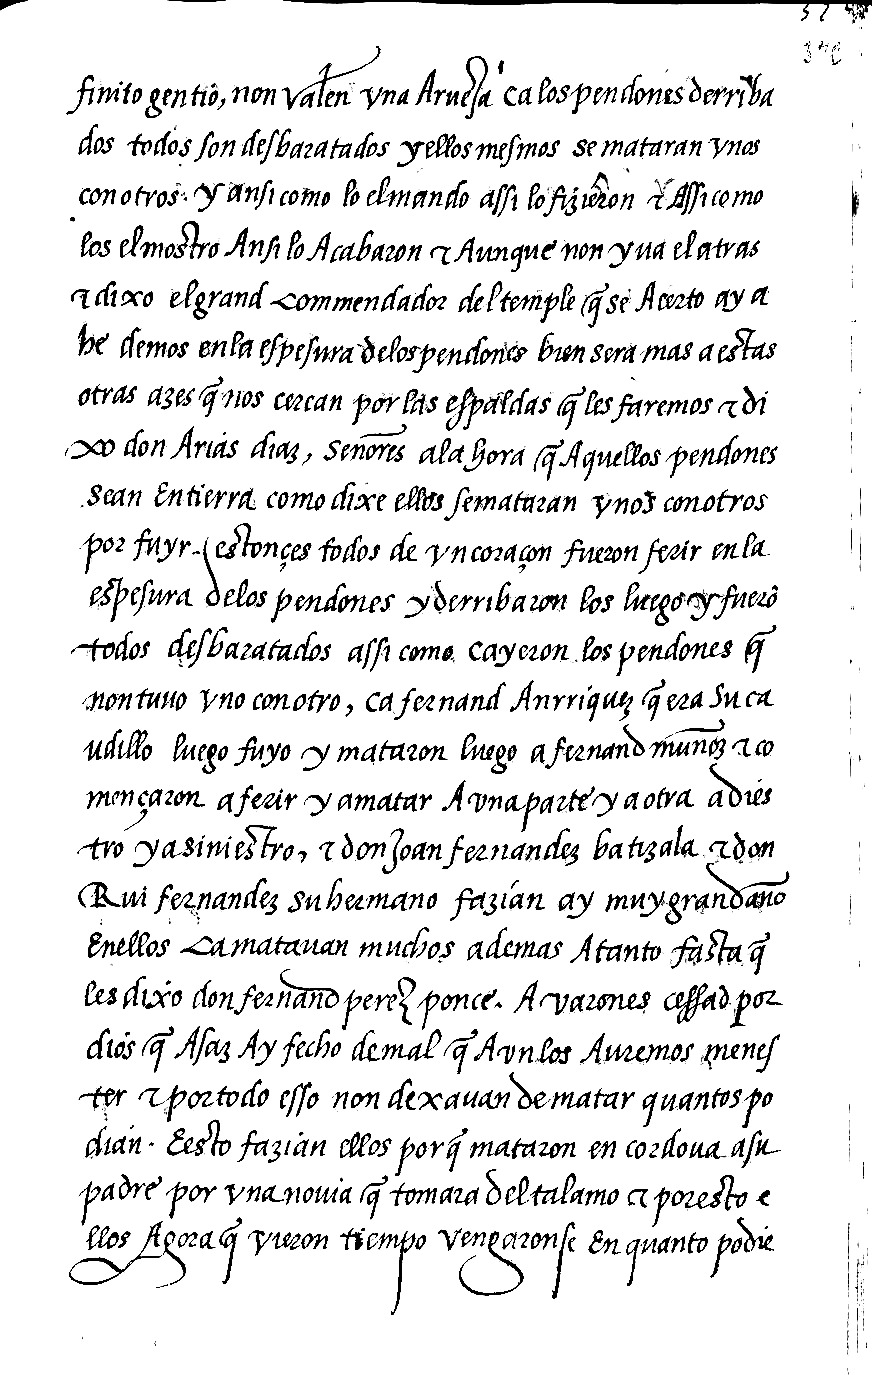 finito gentio, non valen vna Arueja ca los pendones derriba
dos todos son desbaratados y ellos mesmos se mataran vnos
con otros. y ansi como lo el mando assi lo fizieron & Assi como
los el mostro Ansi lo Acabaron & Aunque non yua el atras
& dixo el grand Commendador del temple q̃ se Acerto ay a
he demos en la espesura de los pendones bien sera mas a estas
otras azes q̃ nos cercan por las espaldas q̃ les faremos & di
xo don Arias diaz, señores a la hora q̃ Aquellos pendones
sean En tierra como dixe ellos se mataran vnos con otros
por fuyr. estonçes todos de vn coraçon fueron ferir en la
espesura de los pendones y derribaron los luego y fuerõ
todos desbaratados assi como cayeron los pendones q̃
non tuuo vno con otro, ca fernand Anrriquez q̃ era su ca
udillo luego fuyo y mataron luego a fernand muñoz & co
mençaron a ferir y a matar A vna parte y a otra a dies
tro y a siniestro, & don Joan fernandez batizala & don
Rui fernandez su hermano fazian ay muy grand daño
En ellos Ca matauan muchos ademas A tanto fasta q̃
les dixo don fernand perez ponce. A varones cessad por
dios q̃ Asaz Ay fecho de mal q̃ Avn los Auremos menes
ter & por todo esso non dexauan de matar quantos po
dian. E esto fazian ellos porq̃ mataron en cordoua a su
padre por vna nouia q̃ tomara del talamo & por esto e
llos Agora q̃ vieron tiempo vengaronse En quanto podie